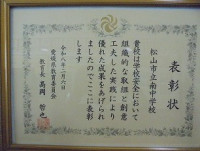 表彰状
松山市立南中学校
貴校は学校安全において
組織的な取組と創意
工夫した実践により
優れた成果をあげられ
ましたのでここに表彰
します
令和八年二月六日
愛媛県教育委員会
教育長